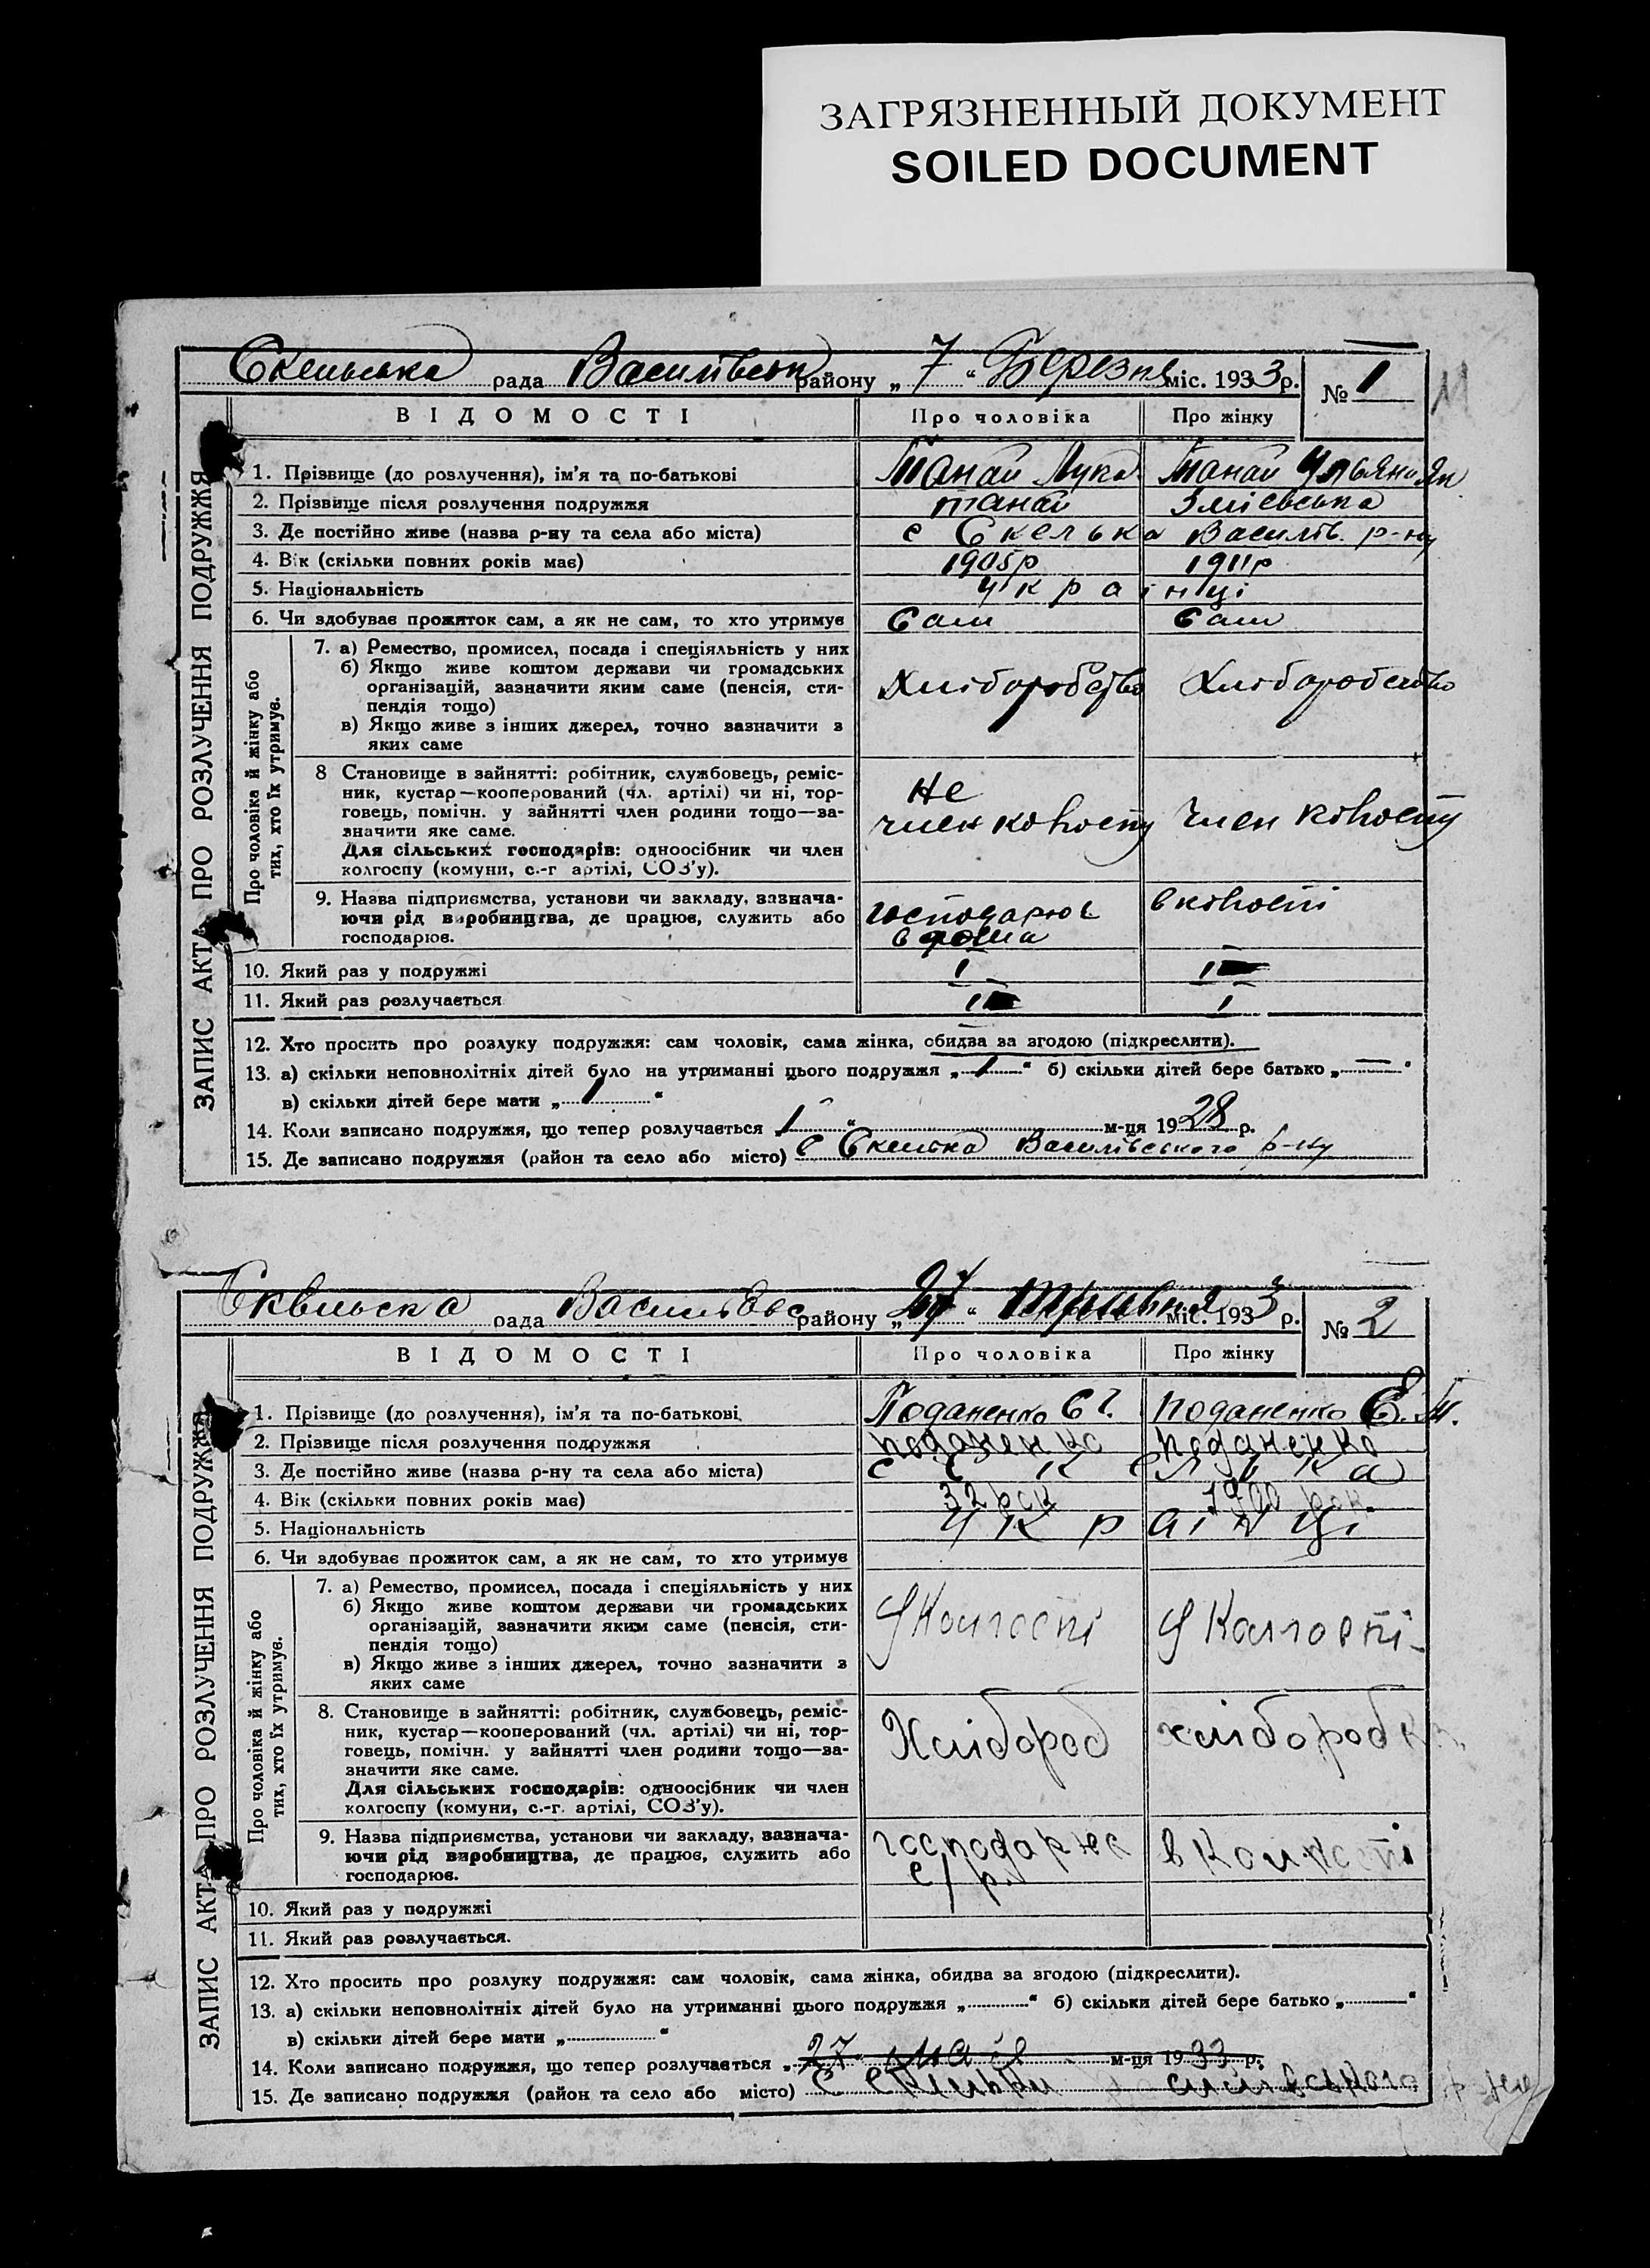 ЗАГРЯЗНЕННЫЙ ДОКУМЕНТ
SOILED DOCUMENT
Скельська рада Василівськ району „ 7 “ Березня міс. 1933 р. № 1
ЗАПИС АКТА ПРО РОЗЛУЧЕННЯ ПОДРУЖЖЯ
ВІДОМОСТІ Про чоловіка Про жінку
1. Прізвище (до розлучення), ім'я та по-батькові Танай Лука Танай Ульяна Як
2. Прізвище після розлучення подружжя Танай Зміевська
3. Де постійно живе (назва р-ну та села або міста) с Скелька Василів. р-ну
4. Вік (скільки повних років має) 1905р 1911р
5. Національність Українці
6. Чи здобуває прожиток сам, а як не сам, то хто утримує Сам Сам
Про чоловіка й жінку або тих, хто їх утримує.
7. а) Ремество, промисел, посада і спеціяльність у них
б) Якщо живе коштом держави чи громадських
організацій, зазначити яким саме (пенсія, сти-
пендія тощо)
в) Якщо живе з інших джерел, точно зазначити з
яких саме
Хліборобство Хліборобство
8 Становище в зайнятті: робітник, службовець, реміс-
ник, кустар—кооперований (чл. артілі) чи ні, тор-
говець, помічн. у зайнятті член родини тощо—за-
значити яке саме.
Для сільських господарів: одноосібник чи член
колгоспу (комуни, с.-г артілі, СОЗ'у).
Не
член колоспу член колоспу
9. Назва підприємства, установи чи закладу, зазнача-
ючи рід виробництва, де працює, служить або
господарює.
господарює в колоспі
10. Який раз у подружжі 1 1
11. Який раз розлучається 1 1
12. Хто просить про розлуку подружжя: сам чоловік, сама жінка, обидва за згодою (підкреслити).
13. а) скільки неповнолітніх дітей було на утриманні цього подружжя „ 1 “ б) скільки дітей бере батько „ — “
в) скільки дітей бере мати „ 1 “
14. Коли записано подружжя, що тепер розлучається „ 1 “ м-ця 1928 р.
15. Де записано подружжя (район та село або місто) с Скелька Василівського р-ну
рада району „ 27 “ Травня міс. 1933 р. № 2
ЗАПИС АКТА ПРО РОЗЛУЧЕННЯ ПОДРУЖЖЯ
ВІДОМОСТІ Про чоловіка Про жінку
1. Прізвище (до розлучення), ім'я та по-батькові Поданенко С Г. Поданенко Є. М.
2. Прізвище після розлучення подружжя Поданенко Поданенко
3. Де постійно живе (назва р-ну та села або міста) с Скелька
4. Вік (скільки повних років має) 32 рок 1900 рок.
5. Національність Українці
6. Чи здобуває прожиток сам, а як не сам, то хто утримує
Про чоловіка й жінку або тих, хто їх утримує.
7. а) Ремество, промисел, посада і спеціяльність у них
б) Якщо живе коштом держави чи громадських
організацій, зазначити яким саме (пенсія, сти-
пендія тощо)
в) Якщо живе з інших джерел, точно зазначити з
яких саме
У Колгоспі У Колгоспі
8. Становище в зайнятті: робітник, службовець, реміс-
ник, кустар—кооперований (чл. артілі) чи ні, тор-
говець, помічн. у зайнятті член родини тощо—за-
значити яке саме.
Для сільських господарів: одноосібник чи член
колгоспу (комуни, с.-г. артілі, СОЗ'у).
Хлібороб хліборобка
9. Назва підприємства, установи чи закладу, зазнача-
ючи рід виробництва, де працює, служить або
господарює.
господарює в
10. Який раз у подружжі
11. Який раз розлучається.
12. Хто просить про розлуку подружжя: сам чоловік, сама жінка, обидва за згодою (підкреслити).
13. а) скільки неповнолітніх дітей було на утриманні цього подружжя „ “ б) скільки дітей бере батько „ “
в) скільки дітей бере мати „ “
14. Коли записано подружжя, що тепер розлучається „ 27 мая м-ця 1933 р.
15. Де записано подружжя (район та село або місто) с